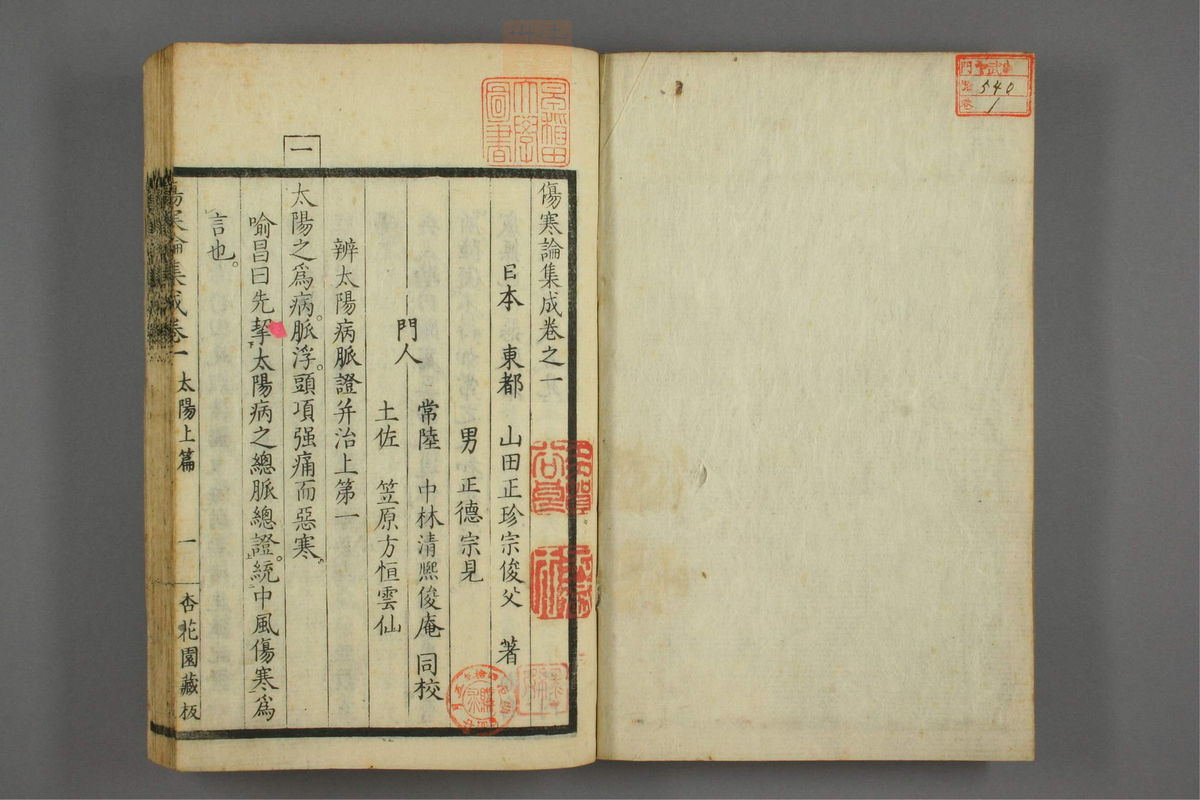 傷寒論集成卷之一
日本 東都 山田正珍宗俊父 著
男 正德宗見
門人
常陸 中林清熈俊庵 同校
土佐 笠原方恒雲仙
辨太陽病脈證并治上第一
一
太陽之爲病。脈浮。頭項强痛而惡寒。
喻昌曰先挈太陽病之總脈總證。統中風傷寒爲
言也。
傷寒論集成卷一 太陽上篇 一 杏花園藏板
早稲田大學圖書
540
1